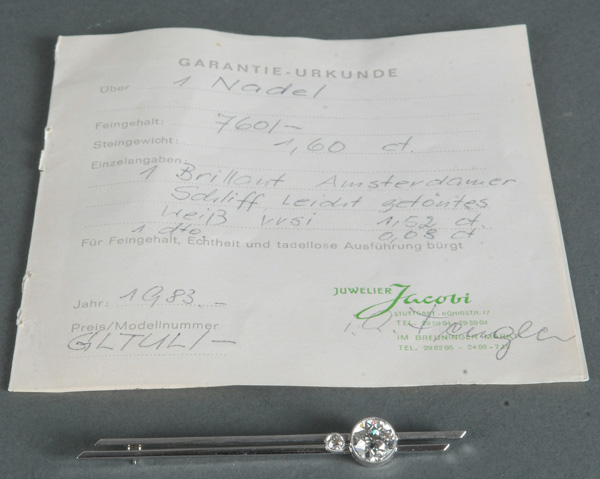 GARANTIE-URKUNDE
Über 1 Nadel
Feingehalt: 760/-
Steingewicht: 1,60 ct.
Einzelangaben:
1 Brillant Amsterdamer
Schliff Leicht getöntes
weiß vvsi 1,52 ct.
1 dto. 0,08 ct
Für Feingehalt, Echtheit und tadellose Ausführung bürgt
Jahr: 1983.-
Preis/Modellnummer
GLTUL/-
JUWELIER Jacobi
STUTTGART · KÖNIGSTR. 17
TEL.
IM BREUNINGER-MARKT
TEL.